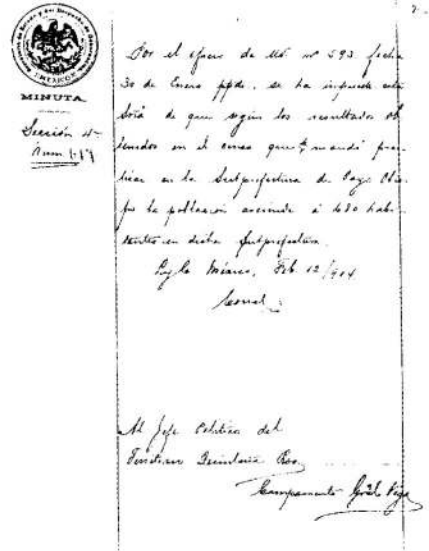 MINUTA
Sección 4ª
Núm.
Por el oficio de Ud. nº 593 fecha
30 de Enero ppdo. se ha impuesto esta
de que según los resultados ob
tenidos en el censo que mandó prac
ticar en la Subprefectura de Payo Obis
po la población asciende á 680 habi
tantes en dicha Subprefectura.
México, Feb. 12/904
Corral
Al Jefe Político del
Territorio Quintana Roo
Campamento Gral. Vega